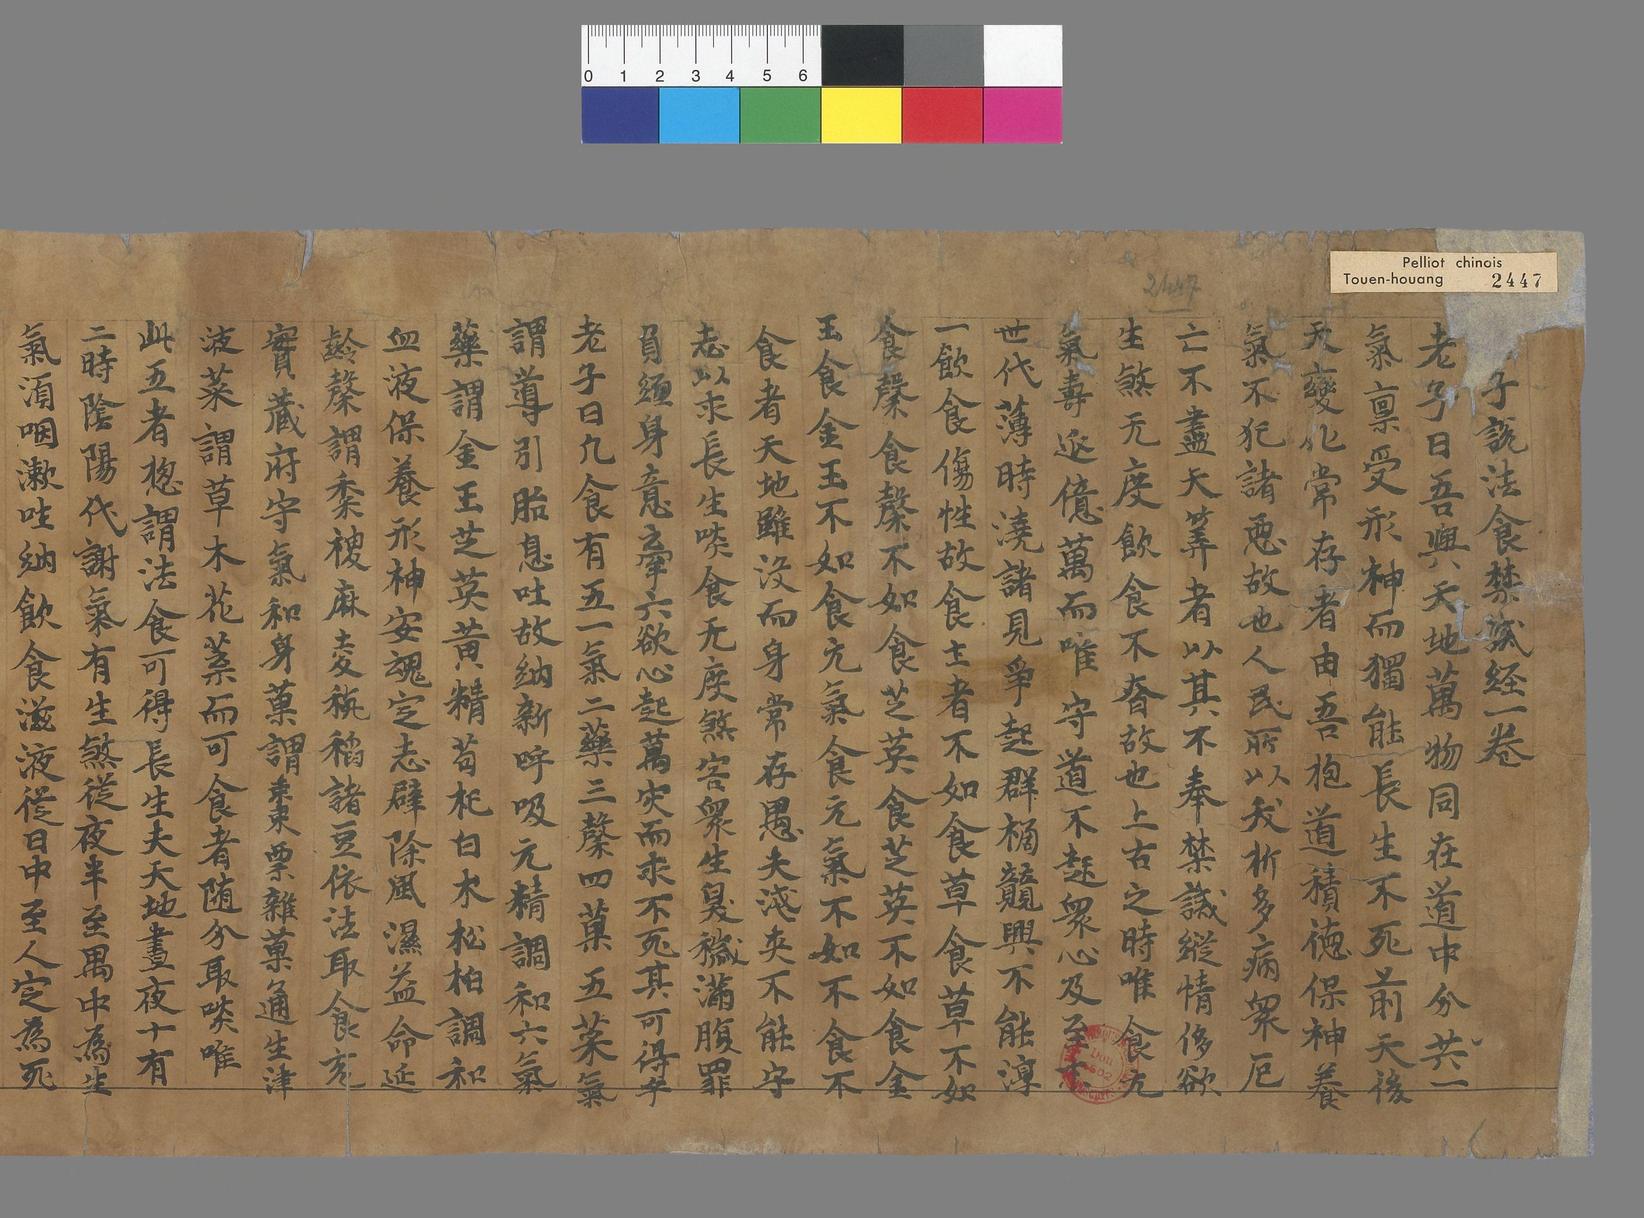 Pelliot chinois
Touen-houang 2447
0 1 2 3 4 5 6
2447
子說法食禁誡経一卷
老子曰吾與天地萬物同在道中分共一
氣稟受形神而獨能長生不死前天後
天變化常存者由吾抱道積德保神養
氣不犯諸惡故也人民所以我析多病衆厄
亡不盡天筭者以其不奉禁誡縱情侈欲
生煞无度飲食不春故也上古之時唯食元
氣壽逕億萬而唯守道不起衆心及至
世代薄時澆諸見爭起群橘競興不能淳
一飲食傷性故食主者不如食草食草不如
食馨食馨不如食芝英食芝英不如食金
玉食金玉不如食元氣食元氣不如不食不
食者天地雖沒而身常存愚夫淺夾不能守
志以求長生啖食无度煞害衆生臭穢滿腹罪
負纏身意牽六欲心起萬灾而求不死其可得乎
老子曰凡食有五一氣二藥三馨四菓五菜氣
謂導引胎息吐故納新呼吸元精調和六氣
藥謂金玉芝英黄精苟杞白朮松柏調和
血液保養形神安魂定志辟除風濕益命延
齡馨謂黍稷麻麦秔稻諸豆依法取食充
實藏府守氣和身菓謂棗栗雜菓通生津
液菜謂草木花葉而可食者随分取啖唯
此五者惣謂法食可得長生夫天地晝夜十有
二時陰陽代謝氣有生煞従夜半至禺中為生
氣湏咽漱吐納飲食滋液従日中至人定為死